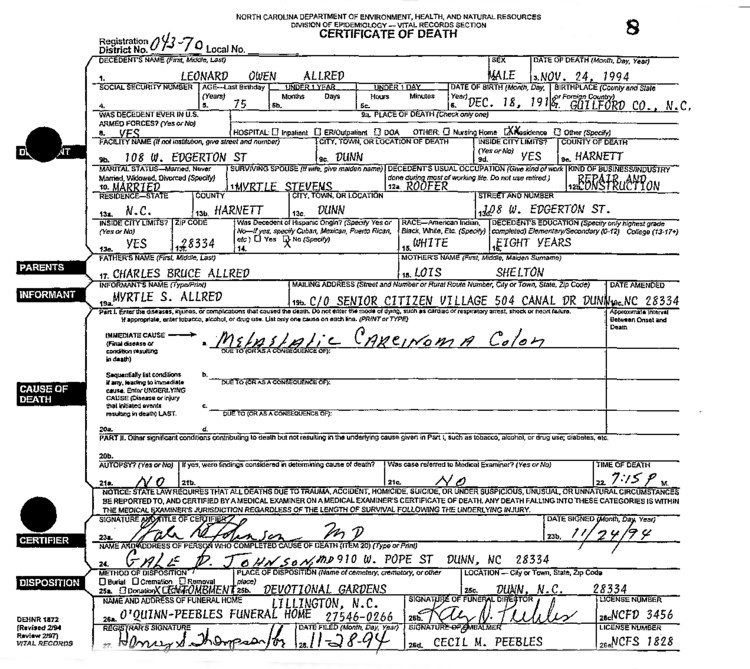 NORTH CAROLINA DEPARTMENT OF ENVIRONMENT, HEALTH, AND NATURAL RESOURCES
DIVISION OF EPIDEMIOLOGY — VITAL RECORDS SECTION
CERTIFICATE OF DEATH
8
Registration District No. 043-70 Local No.
DECEDENT'S NAME (First, Middle, Last) SEX DATE OF DEATH (Month, Day, Year)
1. LEONARD OWEN ALLRED MALE 3. NOV. 24, 1994
SOCIAL SECURITY NUMBER AGE—Last Birthday (Years) UNDER 1 YEAR Months Days UNDER 1 DAY Hours Minutes DATE OF BIRTH (Month, Day, Year) BIRTHPLACE (County and State or Foreign Country)
4. 5. 75 5b. 5c. 6. DEC. 18, GUILFORD CO., N.C.
WAS DECEDENT EVER IN U.S. ARMED FORCES? (Yes or No) 9a. PLACE OF DEATH (Check only one)
8. YES HOSPITAL: Inpatient ER/Outpatient DOA OTHER: Nursing Home XXResidence Other (Specify)
FACILITY NAME (If not institution, give street and number) CITY, TOWN, OR LOCATION OF DEATH INSIDE CITY LIMITS? (Yes or No) COUNTY OF DEATH
9b. 108 W. EDGERTON ST 9c. DUNN 9d. YES 9e. HARNETT
MARITAL STATUS—Married, Never Married, Widowed, Divorced (Specify) SURVIVING SPOUSE (If wife, give maiden name) DECEDENT'S USUAL OCCUPATION (Give kind of work done during most of working life. Do not use retired.) KIND OF BUSINESS/INDUSTRY
10. MARRIED MYRTLE STEVENS 12a. ROOFER REPAIR AND CONSTRUCTION
RESIDENCE—STATE COUNTY CITY, TOWN, OR LOCATION STREET AND NUMBER
13a. N.C. 13b. HARNETT 13c. DUNN 108 W. EDGERTON ST.
INSIDE CITY LIMITS? (Yes or No) ZIP CODE Was Decedent of Hispanic Origin? (Specify Yes or No—If yes, specify Cuban, Mexican, Puerto Rican, etc.) Yes X No (Specify) RACE—American Indian, Black, White, Etc. (Specify) DECEDENT'S EDUCATION (Specify only highest grade completed) Elementary/Secondary (0-12) College (13-17+)
13e. YES 28334 14. 15. WHITE EIGHT YEARS
FATHER'S NAME (First, Middle, Last) MOTHER'S NAME (First, Middle, Maiden Surname)
PARENTS 17. CHARLES BRUCE ALLRED 18. LOIS SHELTON
INFORMANT'S NAME (Type/Print) MAILING ADDRESS (Street and Number or Rural Route Number, City or Town, State, Zip Code) DATE AMENDED
INFORMANT 19a. MYRTLE S. ALLRED 19b. C/O SENIOR CITIZEN VILLAGE 504 CANAL DR DUNN, NC 28334
Part I. Enter the diseases, injuries, or complications that caused the death. Do not enter the mode of dying, such as cardiac or respiratory arrest, shock or heart failure.
If appropriate, enter tobacco, alcohol, or drug use. List only one cause on each line. (PRINT or TYPE)
Approximate Interval Between Onset and Death
IMMEDIATE CAUSE (Final disease or condition resulting in death) a. Metastatic Carcinoma Colon
DUE TO (OR AS A CONSEQUENCE OF):
CAUSE OF DEATH
Sequentially list conditions if any, leading to immediate cause. Enter UNDERLYING CAUSE (Disease or injury that initiated events resulting in death) LAST.
b.
DUE TO (OR AS A CONSEQUENCE OF):
c.
DUE TO (OR AS A CONSEQUENCE OF):
20a. d.
PART II. Other significant conditions contributing to death but not resulting in the underlying cause given in Part I, such as tobacco, alcohol, or drug use; diabetes, etc.
20b.
AUTOPSY? (Yes or No) If yes, were findings considered in determining cause of death? Was case referred to Medical Examiner? (Yes or No) TIME OF DEATH
21a. NO 21b. 21c. NO 22. 7:15 P M.
NOTICE: STATE LAW REQUIRES THAT ALL DEATHS DUE TO TRAUMA, ACCIDENT, HOMICIDE, SUICIDE, OR UNDER SUSPICIOUS, UNUSUAL, OR UNNATURAL CIRCUMSTANCES
BE REPORTED TO, AND CERTIFIED BY A MEDICAL EXAMINER ON A MEDICAL EXAMINER'S CERTIFICATE OF DEATH. ANY DEATH FALLING INTO THESE CATEGORIES IS WITHIN
THE MEDICAL EXAMINER'S JURISDICTION REGARDLESS OF THE LENGTH OF SURVIVAL FOLLOWING THE UNDERLYING INJURY.
SIGNATURE AND TITLE OF CERTIFIER DATE SIGNED (Month, Day, Year)
CERTIFIER 23a. Gale D Johnson MD 23b. 11/24/94
NAME AND ADDRESS OF PERSON WHO COMPLETED CAUSE OF DEATH (ITEM 20) (Type or Print)
24. GALE D. JOHNSON, MD 910 W. POPE ST DUNN, NC 28334
METHOD OF DISPOSITION PLACE OF DISPOSITION (Name of cemetery, crematory, or other place) LOCATION — City or Town, State, Zip Code
DISPOSITION Burial Cremation Removal
25a. Donation ENTOMBMENT 25b. DEVOTIONAL GARDENS 25c. DUNN, N.C. 28334
NAME AND ADDRESS OF FUNERAL HOME SIGNATURE OF FUNERAL DIRECTOR LICENSE NUMBER
LILLINGTON, N.C.
26a. O'QUINN-PEEBLES FUNERAL HOME 27546-0266 26b. Kay N. Peebles NCFD 3456
REGISTRAR'S SIGNATURE DATE FILED (Month, Day, Year) SIGNATURE OF EMBALMER LICENSE NUMBER
Thompson 28. 11-28-94 26d. CECIL M. PEEBLES NCFS 1828
DEHNR 1872
(Revised 2/94
Review 2/97)
VITAL RECORDS